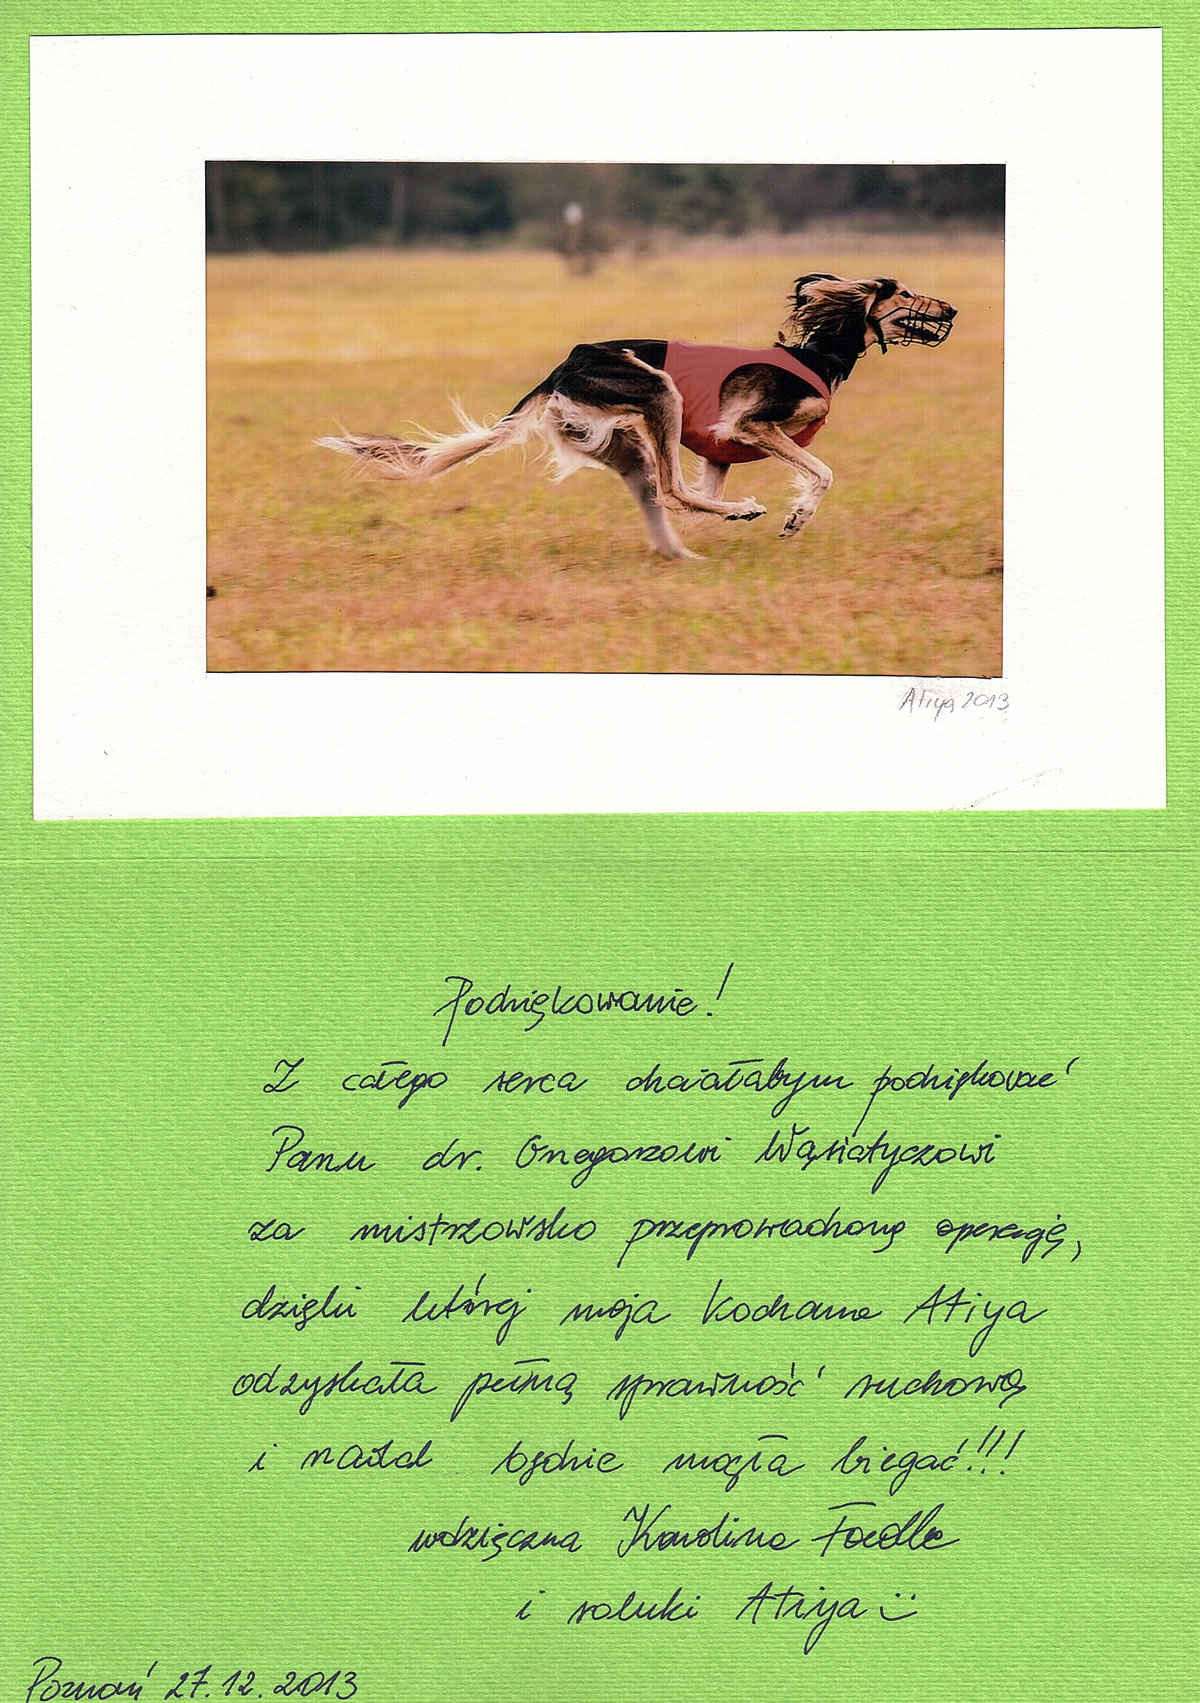 Atiya 2013
Podziękowanie!
Z całego serca chciałabym podziękować
Panu dr. Grzegorzowi Wąsiatyczowi
za mistrzowsko przeprowadzoną operację,
dzięki której moja kochana Atiya
odzyskała pełną sprawność ruchową
i nadal będzie mogła biegać!!!
wdzięczna Karolina
i saluki Atiya
Poznań 27.12.2013